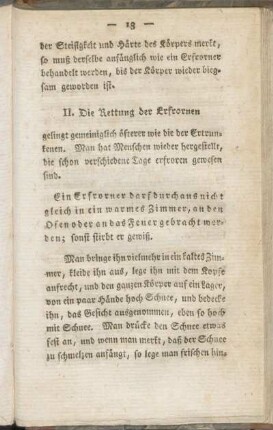 — 18 —
der Steifigkeit und Härte des Körpers merkt,
so muß derselbe anfänglich wie ein Erfrorner
behandelt werden, bis der Körper wieder bieg-
sam geworden ist.
II. Die Rettung der Erfrornen
gelingt gemeiniglich öfterer wie die der Ertrun-
kenen. Man hat Menschen wieder hergestellt,
die schon verschiedene Tage erfroren gewesen
sind.
Ein Erfrorner darf durchaus nicht
gleich in ein warmes Zimmer, an den
Ofen oder an das Feuer gebracht wer-
den; sonst stirbt er gewiß.
Man bringe ihn vielmehr in ein kaltes Zim-
mer, kleide ihn aus, lege ihn mit dem Kopfe
aufrecht, und den ganzen Körper auf ein Lager,
von ein paar Hände hoch Schnee, und bedecke
ihn, das Gesicht ausgenommen, eben so hoch
mit Schnee. Man drücke den Schnee etwas
fest an, und wenn man merkt, daß der Schnee
zu schmelzen anfängt, so lege man frischen hin-